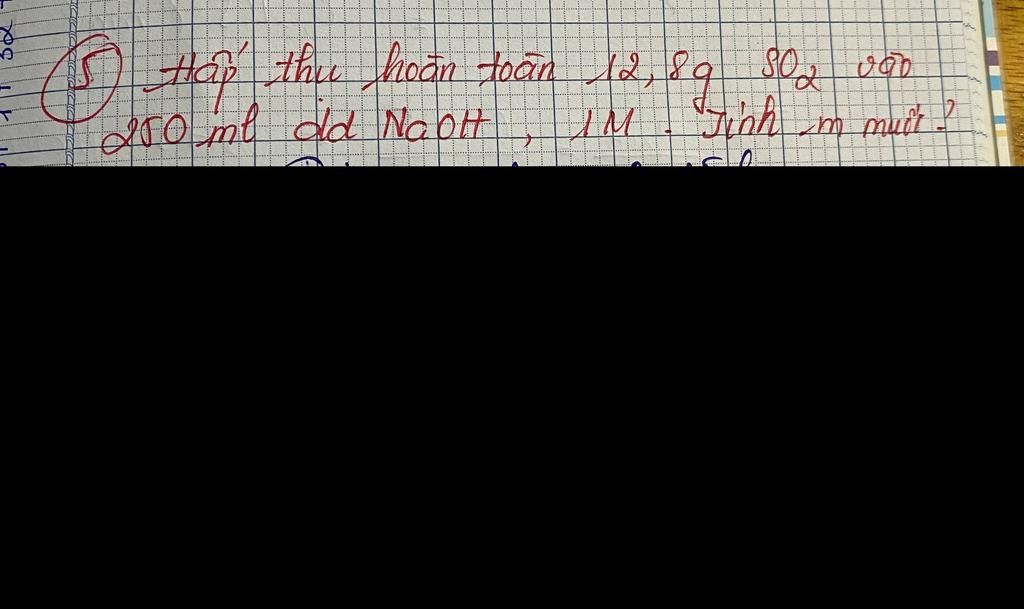 5 Hấp thu hoàn toàn 12,8g SO2 vào
250 ml dd NaOH, 1M. Tính m muối?